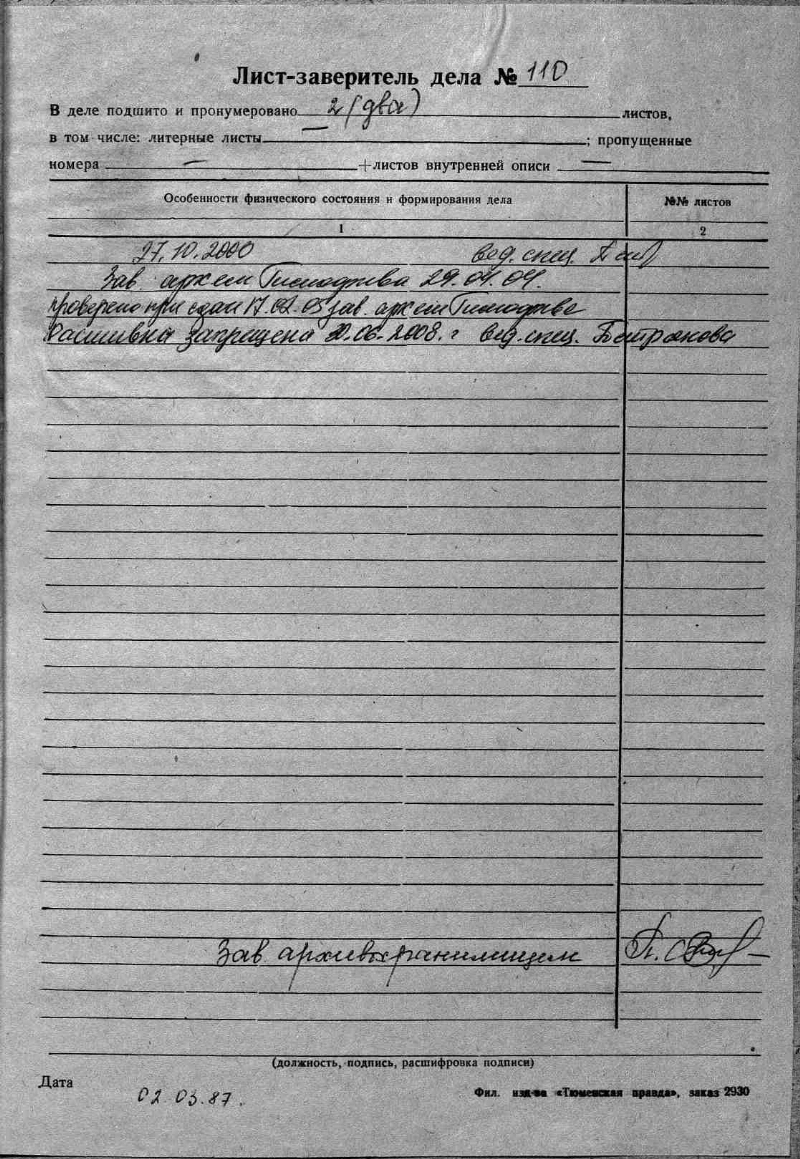 Лист-заверитель дела № 110
В деле подшито и пронумеровано 2 (два) листов,
в том числе: литерные листы — ; пропущенные
номера — +листов внутренней описи —
Особенности физического состояния и формирования дела №№ листов
1 2
27.10.2000 вед. спец.
Зав. арх-ем 29.04.04.
проверено при сдаче 17.02.05 зав. арх-ем
Расшивка запрещена 06.2008. г вед. спец.
Зав архивохранилищем
(должность, подпись, расшифровка подписи)
Дата 02 03.87.
Фил. изд-ва «Тюменская правда», заказ 2930